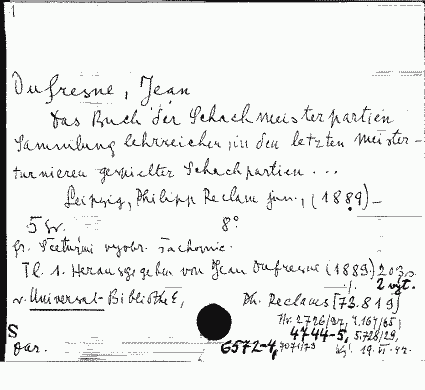 Dufresne, Jean
Das Buch der Schachmeisterpartien
Sammlung lehrreicher, in den letzten Meister-
turnieren gespielter Schachpartien ...
Leipzig, Philipp Reclam jun., (1889)-
5 sv. 8°
Tl. 1. Herausgegeben von Jean Dufresne (1889) 203 s.
2 výt.
v. Universal-Bibliothek, Ph. Reclams [73.819]
4744-5, 5.728/29,
S
Dar. 6572-4, 7071/73 19. VI. 42.